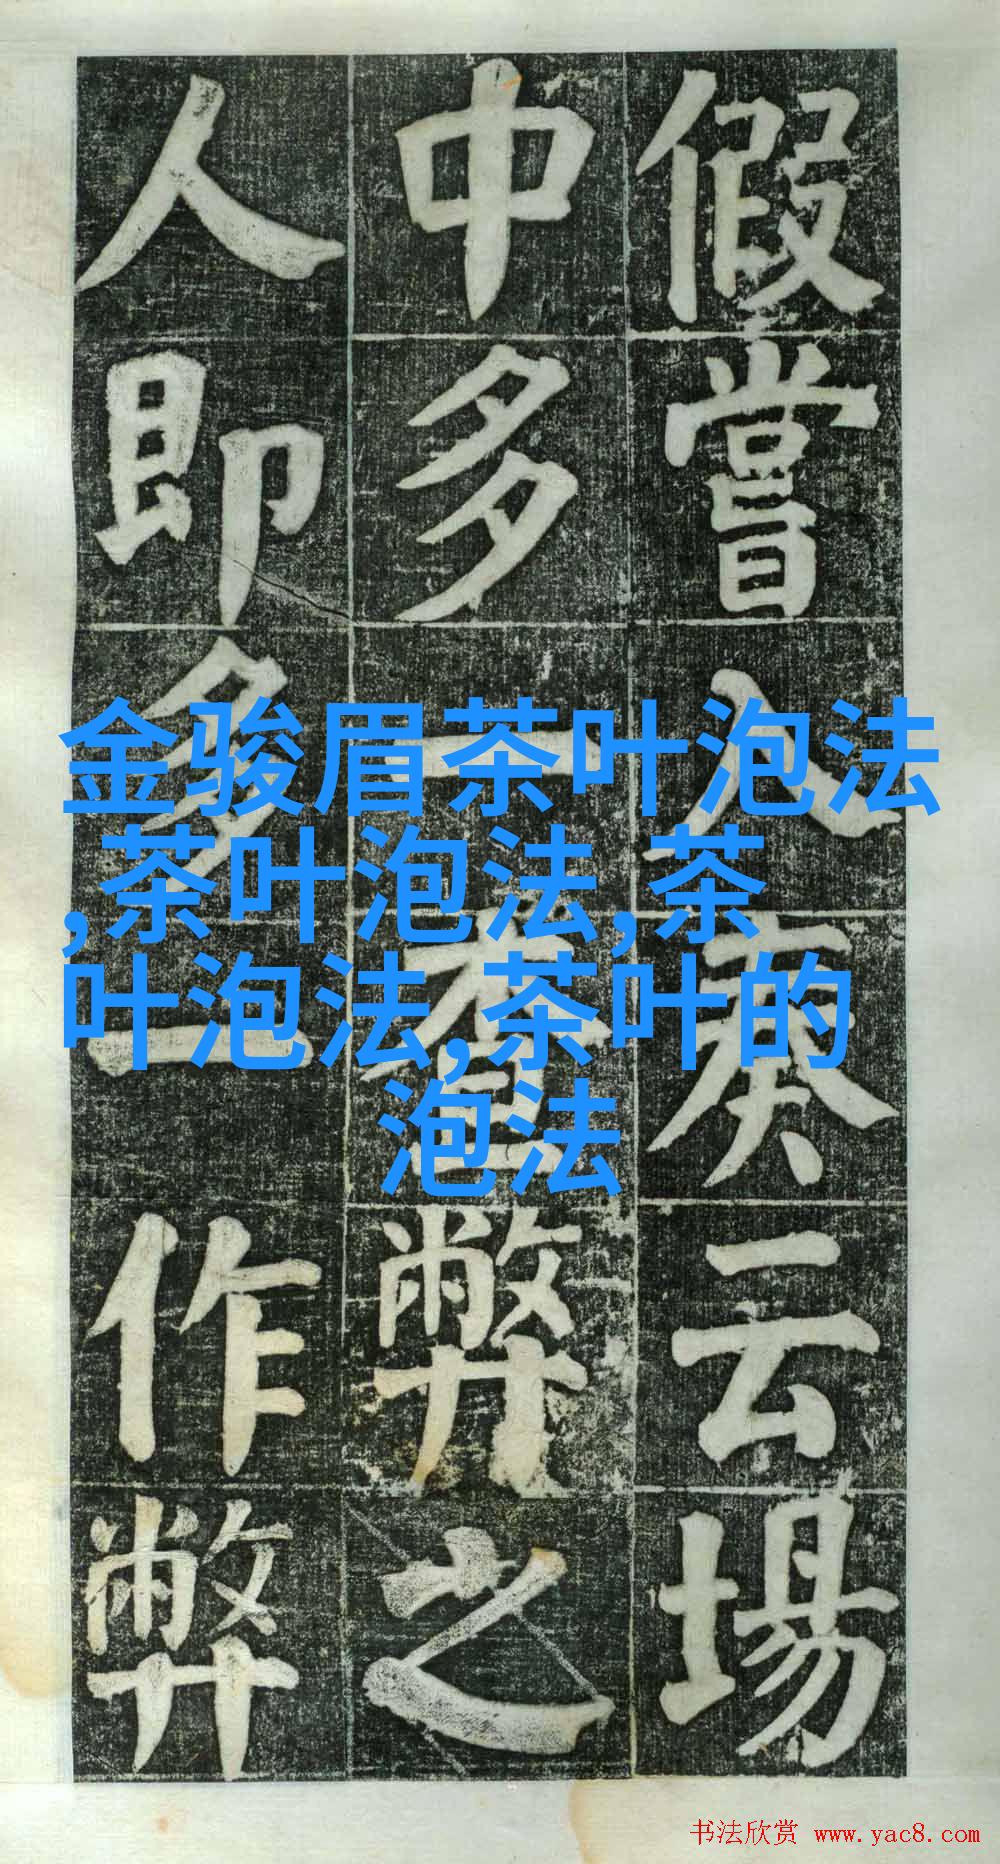 假嘗入奏云場
中多一查弊之
人即多一作弊
金骏眉茶叶泡法
,茶叶泡法,茶
叶泡法,茶叶的
泡法
书法欣赏 www.yac8.com